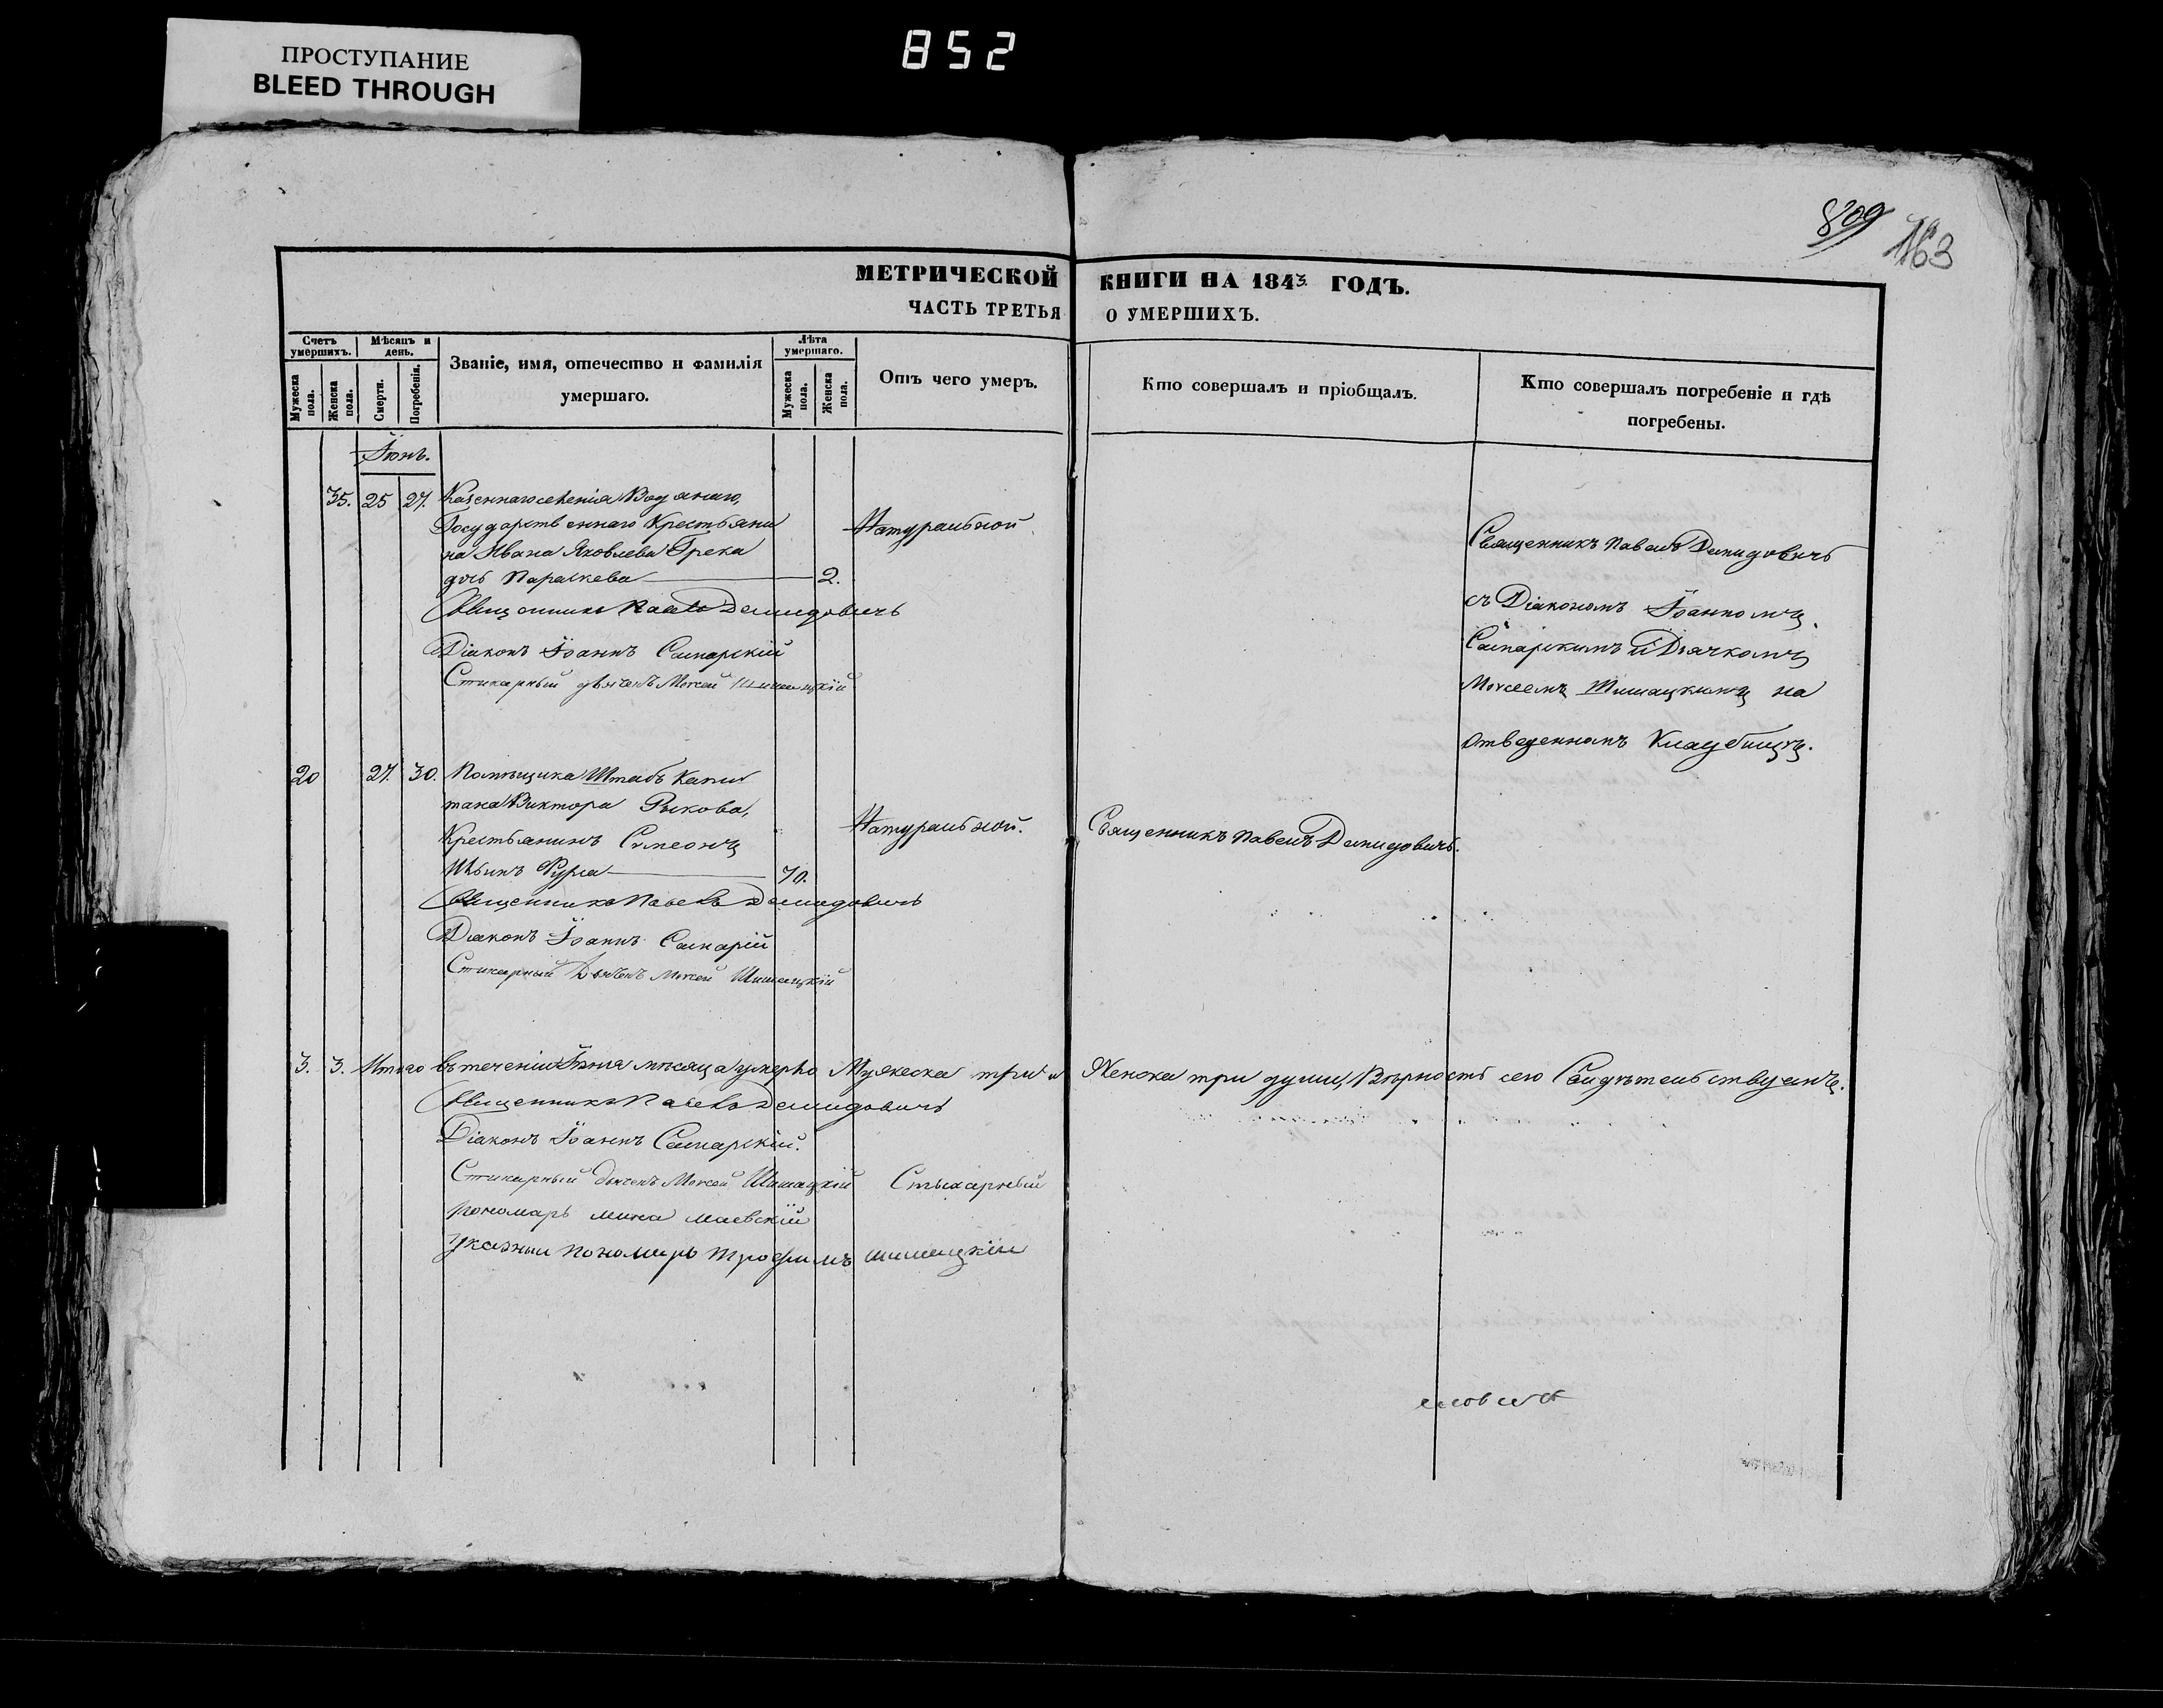 ПРОСТУПАНИЕ
BLEED THROUGH
852
809
163
МЕТРИЧЕСКОЙ КНИГИ НА 1843 ГОДЪ.
ЧАСТЬ ТРЕТЬЯ О УМЕРШИХЪ.
Счетъ умершихъ.
Мужеска пола.
Женска пола.
Мѣсяцъ и день.
Смерти.
Погребенія.
Званіе, имя, отечество и фамилія
умершаго.
Лѣта умершаго.
Мужеска пола.
Женска пола.
Отъ чего умеръ.
Кто совершалъ и пріобщалъ.
Кто совершалъ погребеніе и гдѣ
погребены.
Іюнь.
35. 25 27. Казеннаго селенія Водянаго,
Государственнаго Крестьяни
на Ивана Яковлева Грека
дочь Параскева 2.
Натуральной
Священникъ Павелъ Демидовичь
Діаконъ Іоаннъ Самарскій
Стихарный дьячекъ Моисей Шишацкій
Священникъ Павелъ Демидовичь
съ Діакономъ Іоанномъ
Самарскимъ и Дьячкомъ
Моисеемъ Шишацкимъ на
отведенномъ Кладбищѣ.
20 27. 30. Помѣщика Штабъ Капи
тана Виктора Рыкова,
Крестьянинъ Симеонъ
Ильинъ Фурса 70.
Натуральной.
Священникъ Павелъ Демидовичь.
Священникъ Павелъ Демидовичь
Діаконъ Іоаннъ Самарій
Стихарный Дьячекъ Моисей Шишацкій
3. 3. Итого въ теченіи Іюня мѣсяца умерло Мужеска три и Женска три души, Вѣрность сего Свидѣтельствуемъ.
Священникъ Павелъ Демидовичь
Діаконъ Іоаннъ Самарскій.
Стихарный дьячекъ Моисей Шишацкій Стыхарный
пономарь мина маевскій
Указный пономарь трофимъ шишацкій